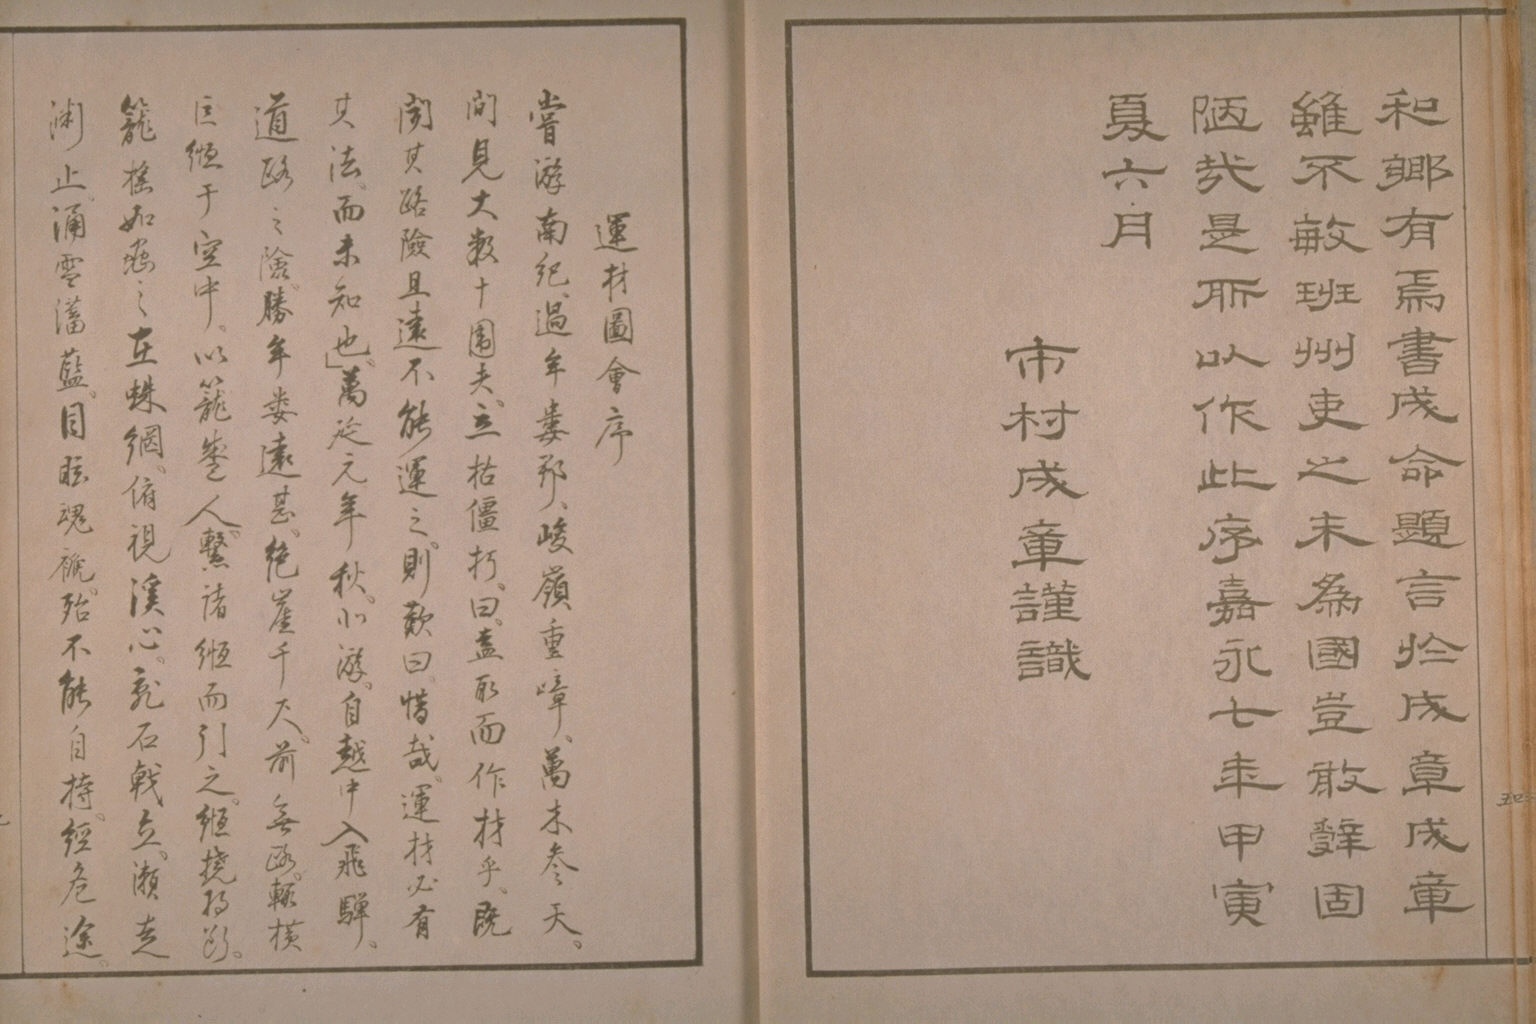 和鄉有焉書成命題言於成章成章
雖不敏班州吏之末為國豈敢辭固
陋哉是所以作此序嘉永七年甲寅
夏六月
市村成章謹識
運材圖會序
嘗游南紀、過牟婁郡、峻嶺重嶂、萬木參天。
間見大數十围夫。立枯僵朽。曰。盍取而作材乎。既
聞其路險且遠不能運之。則歎曰。惜哉。運材必有
其法。而未知也」萬延元年秋。小游。自越中入飛驒。
道路之險。勝牟婁遠甚。絕崖千尺。前無路。輒橫
巨絙于空中。以籠盛人。繫諸絙而引之。絙撓將斷。
籠搖如蟲之在蛛網。俯視溪心。亂石戟立。瀨走
渊止。涌雪瀦藍。目眩魂褫。殆不能自持。經危途。